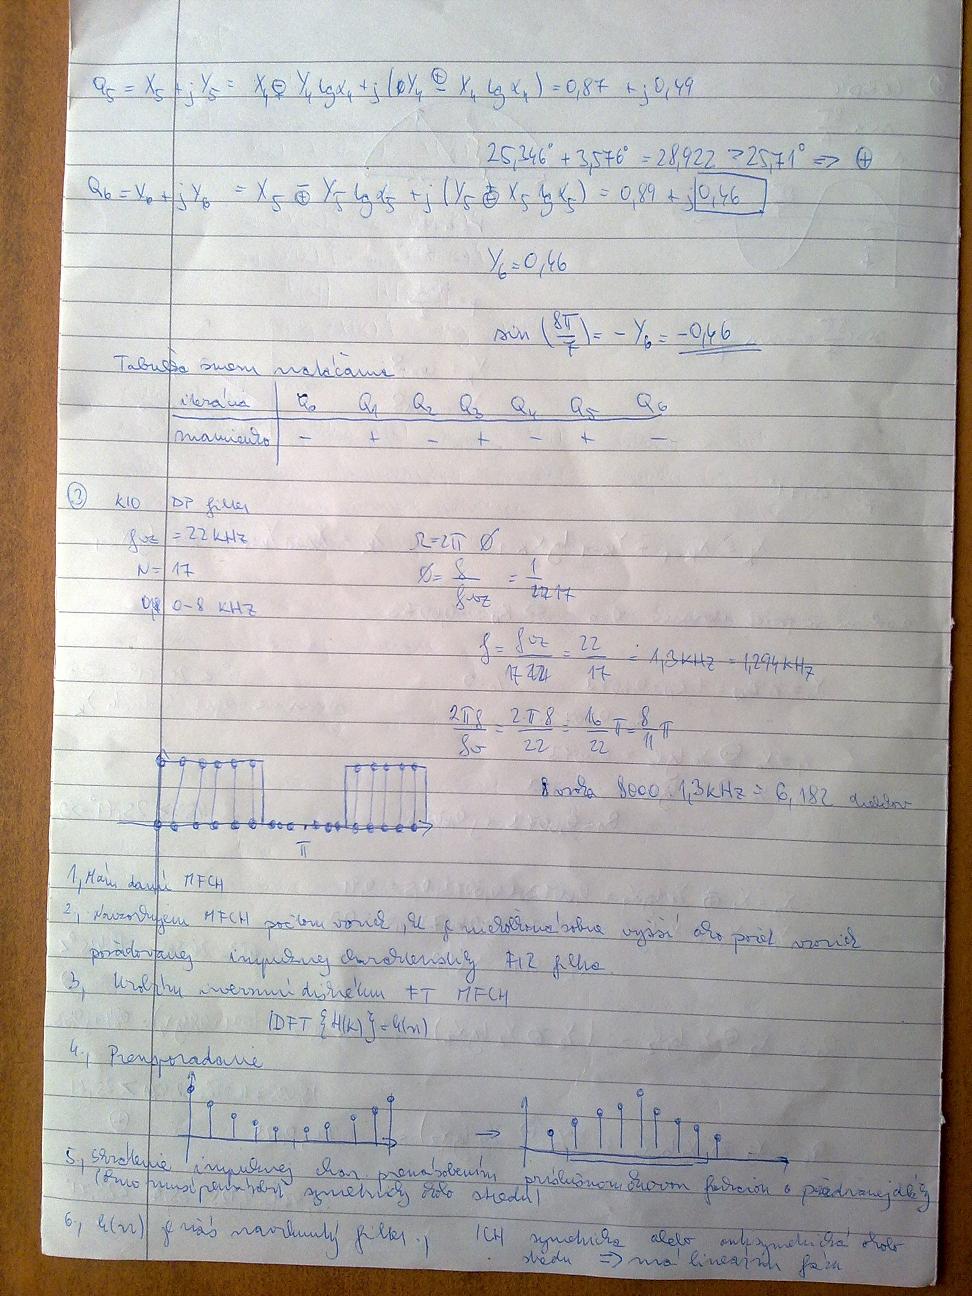 Q₅ = X₅ + jY₅ = X₄ Y₄ tgα₄ + j( Y₄ X₄ tgα₄ ) = 0,87 + j0,49
25,346° + 3,576° = 28,922 > 25,71° ⇒ ⊕
Q₆ = X₆ + jY₆ = X₅ Y₅ tgα₅ + j( Y₅ X₅ tgα₅ ) = 0,89 + j 0,46
Y₆ = 0,46
sin (8π/7) = - Y₆ = -0,46
Tabuľka zmien natáčania
iterácia Q₀ Q₁ Q₂ Q₃ Q₄ Q₅ Q₆
znamienko − + − + − + −
③ K10 DP filter
fvz = 22 kHz Ω=2π ∅
N = 17 ∅ = f/fvz = 1/17
0-8 kHz
f = fvz/17 = 22/17 ≐ 1,3kHz = 1,294kHz
2πf/fv = 2π8/22 = 16/22 π = 8/11 π
8000 1,3kHz = 6,182
π
1, Mám danú MFCH
2, Navzorkujem MFCH počtom vzoriek, je niekoľkonásobne vyšší ako počet vzoriek
požadovanej impulznej charakteristiky FIR filtra
3, Urobím inverznú diskrétnu FT MFCH
IDFT {H(k)} = h(n)
4., Preusporiadanie
→
5, Skrátenie impulznej char prenásobením oknovou funkciou o požadovanej dĺžke
(okno musí prenásobiť symetricky okolo stredu)
6., h(n) je náš navrhnutý filter., ICH symetrická alebo antisymetrická okolo
stredu ⇒ má lineárnu fázu